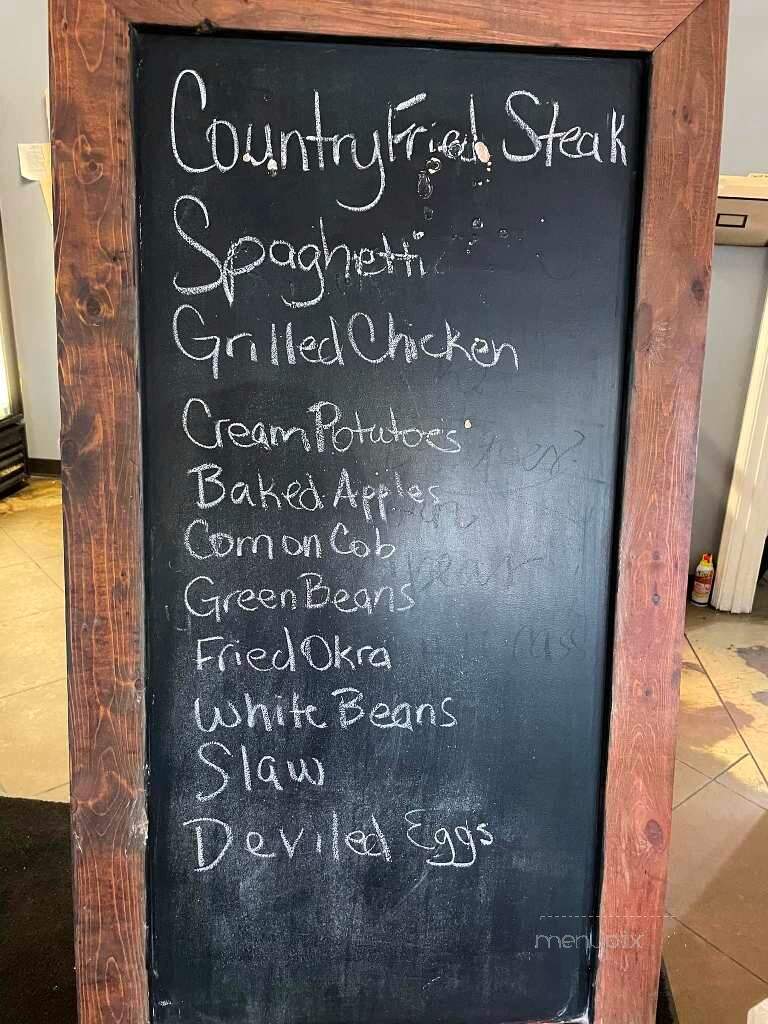 Country Fried Steak
Spaghetti
Grilled Chicken
Cream Potatoes
Baked Apples
Corn on Cob
Green Beans
Fried Okra
White Beans
Slaw
Deviled Eggs
menupix